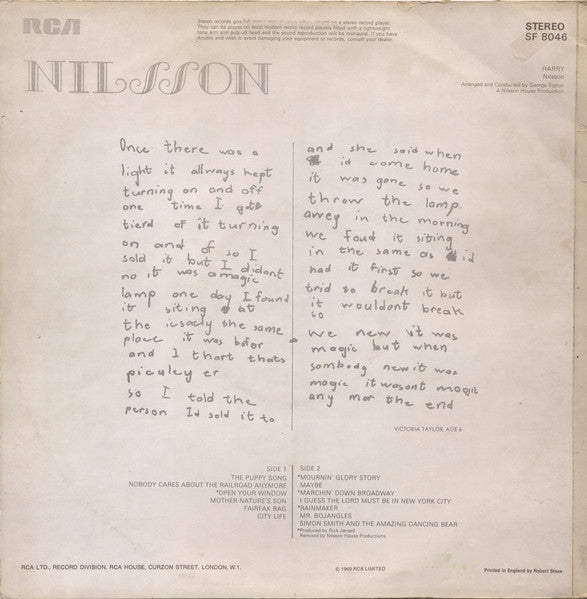 RCA
Stereo records give full stereo reproduction when played on a stereo record player.
They can be played on most modern mono record players fitted with a lightweight
tone arm and pick-up head and the sound reproduction will be monaural. If you have
doubts and wish to avoid damaging your equipment or records, consult your dealer.
STEREO
SF 8046
NILSSON
HARRY
Nilsson
Arranged and Conducted by George Tipton
A Nilsson House Production
Once there was a
light it allways kept
turning on and off
one time I got
tierd of it turning
on and of so I
sold it but I didont
no it was a magic
lamp one day I found
it siting at
the icsacly the same
place it was befor
and I thort thats
piculey er
so I told the
person Id sold it to
and she said when
id come home
it was gone so we
throw the lamp
awey in the morning
we foud it siting
in the same as id
had it first so we
trid to break it but
it wouldont break
so
we new it was
magic but when
sombody new it was
magic it wasont magic
any mor the end
VICTORIA TAYLOR, AGE 6
SIDE 1
THE PUPPY SONG
NOBODY CARES ABOUT THE RAILROAD ANYMORE
*OPEN YOUR WINDOW
MOTHER NATURE'S SON
FAIRFAX RAG
CITY LIFE
SIDE 2
*MOURNIN' GLORY STORY
MAYBE
*MARCHIN' DOWN BROADWAY
I GUESS THE LORD MUST BE IN NEW YORK CITY
*RAINMAKER
MR. BOJANGLES
SIMON SMITH AND THE AMAZING DANCING BEAR
*Produced by Rick Jarrard
Remixed by Nilsson House Productions
RCA LTD., RECORD DIVISION, RCA HOUSE, CURZON STREET, LONDON, W.1.
© 1969 RCA LIMITED
Printed in England by Robert Stace